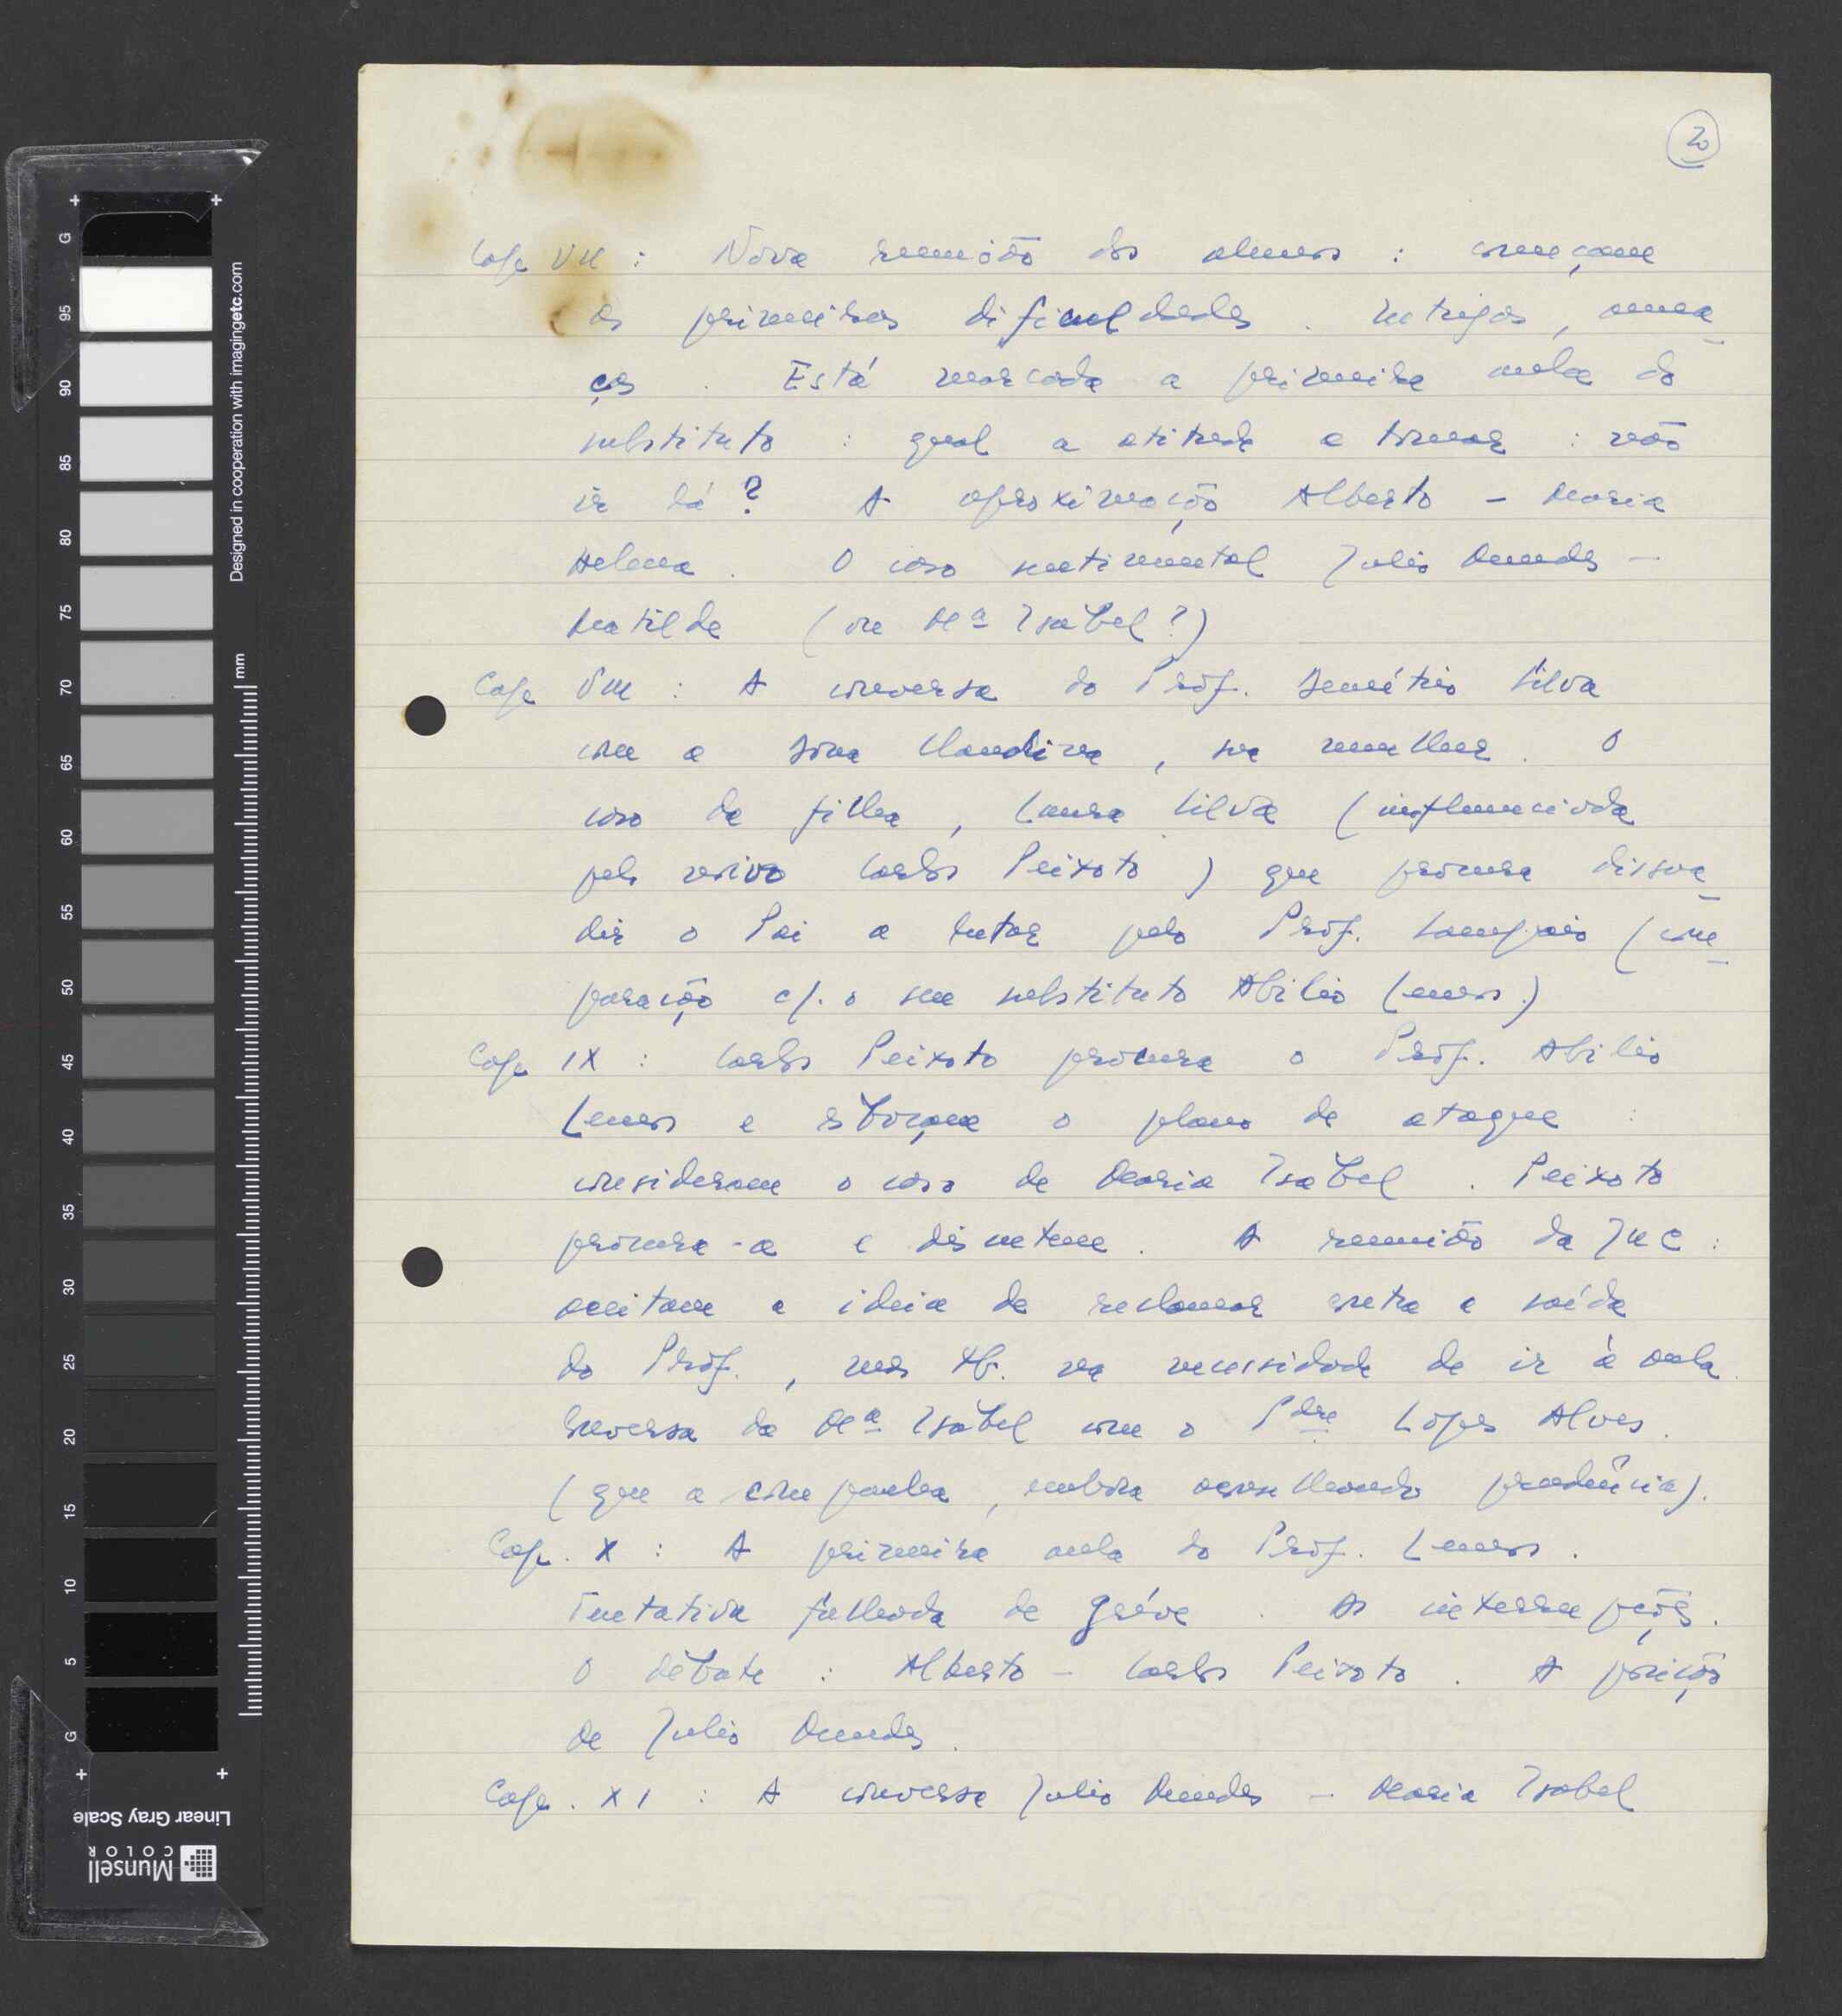 20
Cap VII : Nova reunião dos alunos : começam
as primeiras dificuldades . Intrigas , amea-
ças . Está marcada a primeira aula do
substituto : qual a atitude a tomar : não
ir lá ? A aproximação Alberto - Maria
Helena . O caso sentimental Julio Mendes -
Matilde ( ou Mª Isabel ? )
Cap VIII : A conversa do Prof. Demétrio Silva
com a Dona Claudina , sua mulher . O
caso da filha , Laura Silva ( influenciada
pelo noivo Carlos Peixoto ) que procura dissua-
dir o Pai a lutar pelo Prof. Sampaio ( com-
paração c/. o seu substituto Abilio Lemos . )
Cap IX : Carlos Peixoto procura o Prof. Abilio
Lemos e esboçam o plano de ataque :
consideram o caso de Maria Isabel . Peixoto
procura-a e discutem . A reunião da JUC :
aceitam a ideia de reclamar contra a saída
do Prof. , mas na necessidade de ir à aula .
Conversa da Mª Isabel com o Pdre Lopes Alves .
( que a compara , embora aconselhando prudência ) .
Cap . X : A primeira aula do Prof. Lemos .
Tentativa falhada de gréve . As interrupções .
O debate : Alberto - Carlos Peixoto . A posição
de Julio Mendes .
Cap . XI : A conversa Julio Mendes - Maria Isabel
Designed in cooperation with imagingetc.com
mm
G 95 90 85 80 75 70 65 60 55 50 45 40 35 30 25 20 15 10 5 G
Linear Gray Scale
Munsell
COLOR